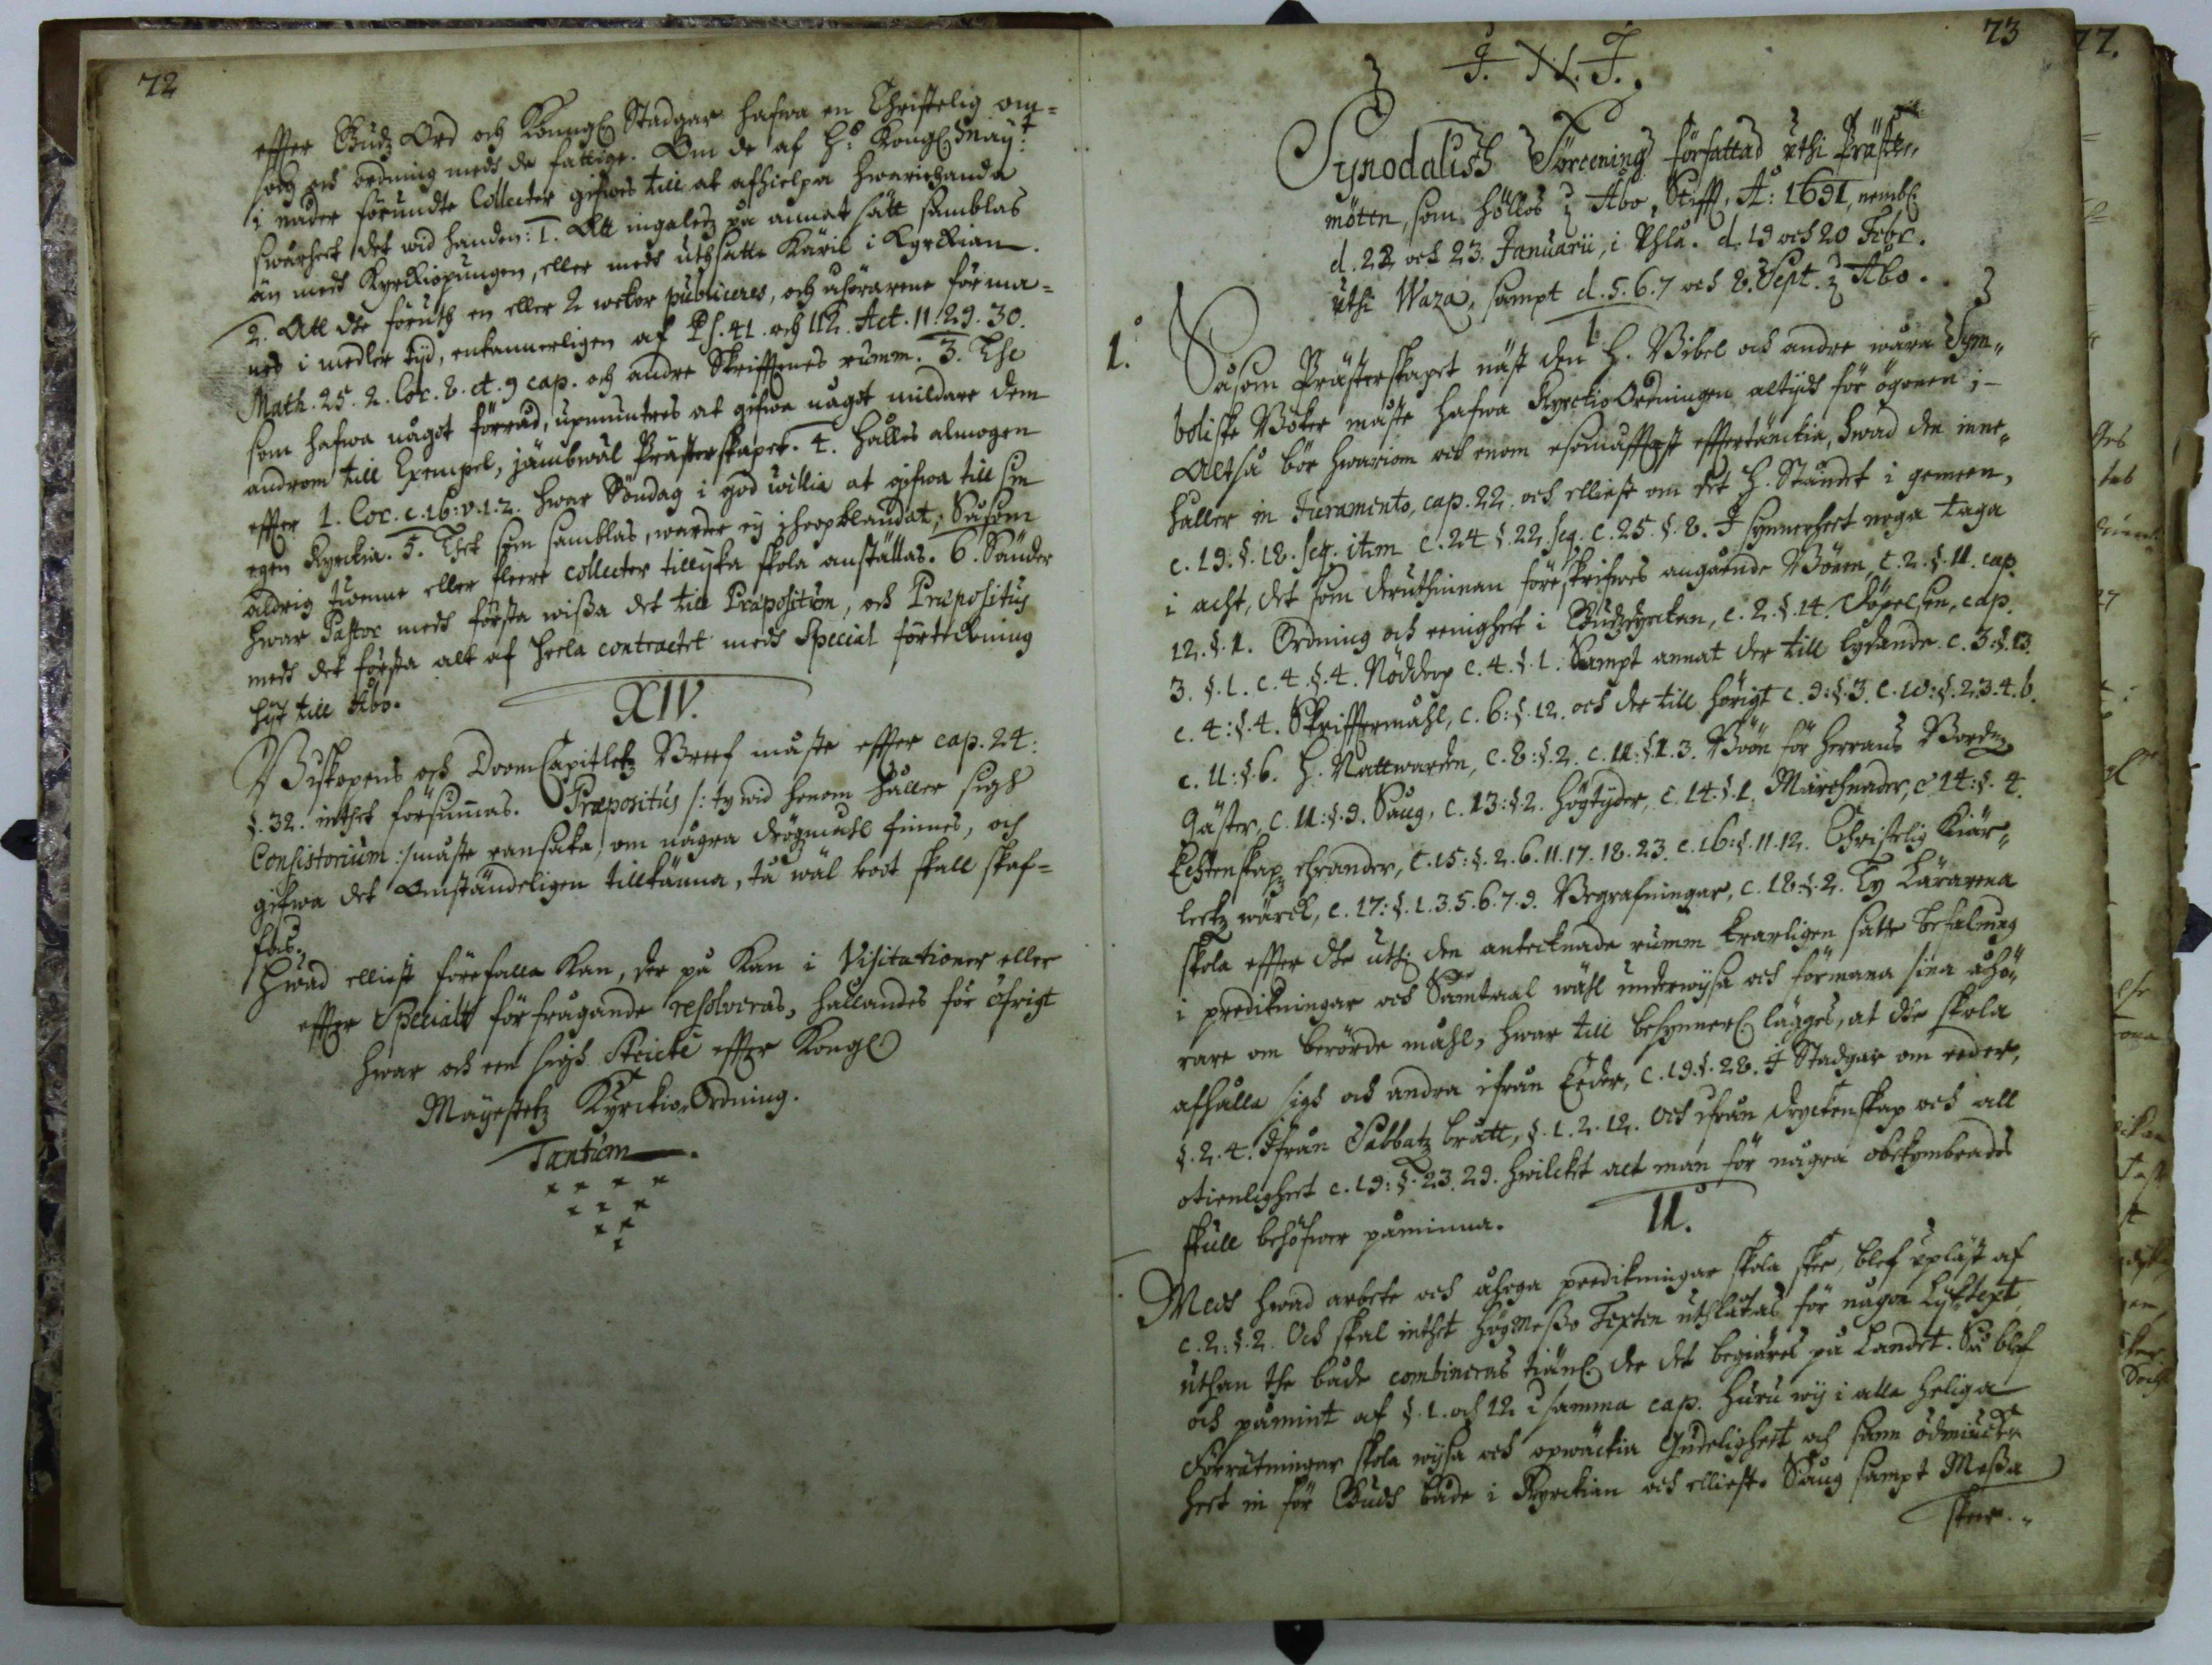 72
effter Gudz Ord och Konungl Stadgar hafwa en Christelig om=
sorg och ordning medh de fattige. Om de af H:s Kongl May:t
i nåder förundte Collecter gifwes till at afhielpa hwariehanda
swårheet, det wid handen: 1. Att ingaledz på annat sätt samblas
än medh Kyrkiopungen, eller medh uthsatte Käril i Kyrkian.
2. Att the föruth en eller 2 wekor publiceres, och åhörarene förma=
nes i medler tijd, enkannerligen af Ps. 41. och 112. Act. 11:29.30.
Math. 25. 2. Cor. 8. et. 9 cap. och andre Skrifftenes rumm. 3. The
som hafwa något förråd, upmuntres at gifwa något mildare dem
androm till Exempel, jämbwäl Prästerskapet. 4. Hålles almogen
effter 1. Cor. c. 16: v. 1. 2. hwar Söndag i god willia at gifwa till sin
egen Kyrckia. 5. Thet som samblas, warder ej ihopblandat, Såsom
aldrig twenne eller fleere collecter tillijka skola anställas. 6. Sänder
hwar Pastor medh första wissa det till Præpositum, och Præpositus
medh det första alt af heela contractet medh Special förtekning
hijt till Åbo.
XIV.
Biskopens och DoomCapitletz Breef måste effter cap. 24:
§. 32. inthet försummas. Præpositus /: ty wid honom håller sigh
Consistorium :/ måste ransaka, om några drögzmåhl finnes, och
gifwa det omständeligen tillkänna, tå wäl boot skall skaf=
fas.
Hwad elliest förefalla kan, der på kan i Visitationer eller
effter Specialt förfrågande resolveras, hållandes för öfrigt
hwar och een sigh stricte effter Kongl
Mayestetz Kyrckio Ordning.
Tantum.
73
J. N. J.
Synodalisk Föreening författad uthi Präste,,
möten, som höllos i Åbo Stifft, A:o 1691, nembl:
d. 22 och 23. Januarii, i Uhla. d. 19 och 20 Febr.
uthi Waza, sampt d. 5. 6. 7 och 8. Sept. i Åbo.
1.
1.
Såsom Prästerskapet näst den H. Bibel och andre wåra Sym,,
boliske Böker måste hafwa KyrckioOrdningen altijdh för ögonen;
Altså bör hwariom och enom efftertänckia, hwad den inne,,
håller in Juramento, cap. 22. och elliest om det H. Ståndet i gemeen,
c. 19. §. 18. seq. item c. 24 §. 22. seq. c. 25. §. 8. I synnerheet noga taga
i acht, det som deruthinnan föreskrifwes angående Bönen c. 2. §. 11. cap.
12. §. 1. Ordning och eenigheet i Gudzdyrckan, c. 2. §. 14. Döpelsen, cap.
3. §. 1. c. 4. §. 4. Nöddop c. 4. §. 1. Sampt annat der till lydande c. 3: §. 13.
c. 4: §. 4. Skrifftermåhl, c. 6: §. 12. och der till hörigt c. 9: §. 3. c. 10: §. 2.3.4.6.
c. 11: §. 6. H. Nattwarden, c. 8: §. 2. c. 11: §. 1. 3. Böön för Herrans Bordz
Gäster, c. 11: §. 9. Sång, c. 13: §. 2. Högtijder, c. 14. §. 1. Marcknader, c. 14: §. 4.
Echtenskapz ährander, c. 15: §. 2. 6. 11. 17. 18. 23. c. 16: §. 11. 12. Christelig Kiär,,
leekz wärck, c. 17: §. 1. 3. 5. 6. 7. 9. Begrafningar, c. 18. §. 2. Ty Lärarena
skola effter the uthi den antecknade rumm klarligen satte befalning
i predikningar och Samtaal wähl underwijsa och förmana sina åhö,,
rare om berörde måhl, hwar till besynnerl lägges, at the skola
afhålla sigh och andra ifrån Eeder, c. 19. §. 28. I Stadgar om eeder,
§. 2. 4. Ifrån Sabbatz brått, §. 1. 2. 12. Och ifrån dryckenskap och all
otienligheet c. 19: §. 23. 29. hwilcket alt man för några obekymbrades
skull behöfwer påminna.
II.
Medh hwad arbete och åhoga predikningar skola skee, blef upläst af
c. 2: §. 2. Och skal inthet HögMesso Texten uthlåtas för någon Lijktext
uthan the både combineras tiänl der det begiäres på Landet. Så blef
och påmint af §. 1. och 12 i samma cap. huru wij i alla heliga
förrätningar skola wijsa och opwäckia Gudeligheet och sann ödmiuk,,
heet in för Gudh både i Kyrckian och elliest. Sång sampt Messa
skee
77.